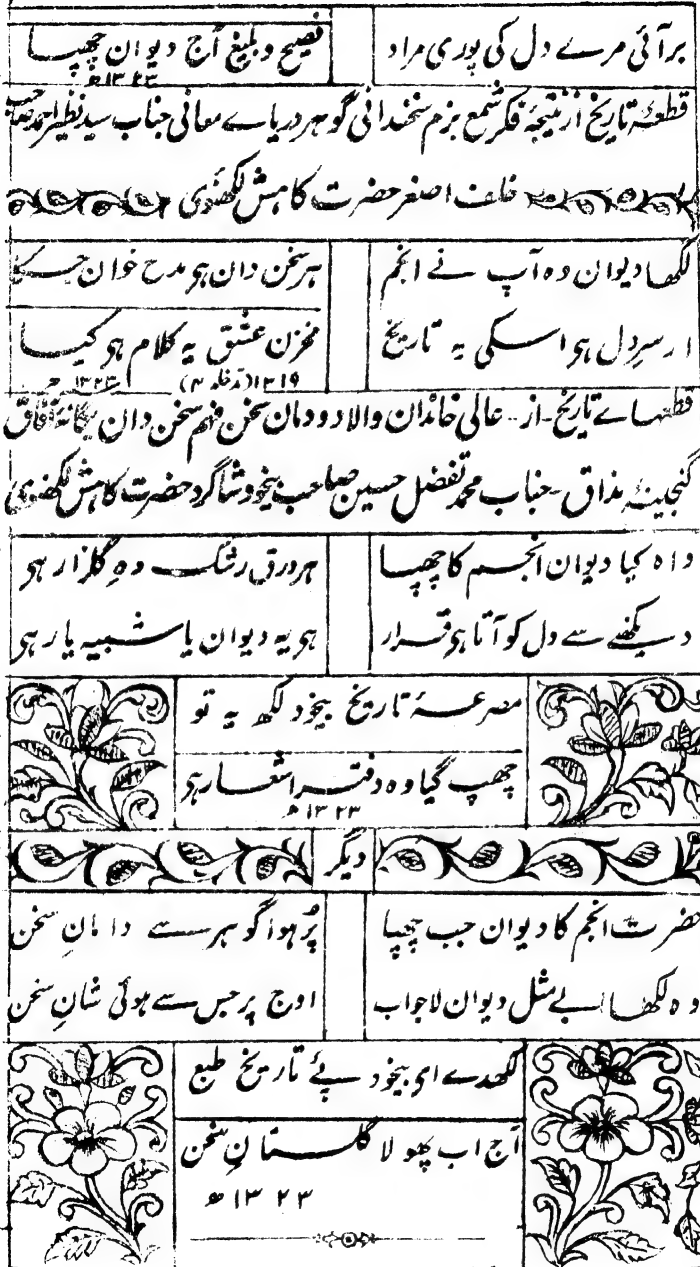 برآئی مرے دل کی پوری مراد
فصیح و بلیغ آج دیوان چھپا
۱۳۲۳ھ
قطعۂ تاریخ از نتیجۂ فکر شمع بزم سخندانی گوہر دریاے معانی جناب سید نظیر احمد صاحب
خلف اصغر حضرت کاہش لکھنوی
لکھا دیوان وہ آپ نے انجم
ہر سخن دان ہو مدح خوان جسکا
از سرِ دل ہو اسکی یہ تاریخ
مخزن عشق یہ کلام ہو کیا
۱۳۱۹ (مدخلہ ۴) ۱۳۲۳ھ
قطعہاے تاریخ۔ از۔ عالی خاندان والا دودمان سخن فہم سخن دان یگانۂ آفاق
گنجینۂ مذاق۔ جناب محمد تفضل حسین صاحب بیخود شاگرد حضرت کاہش لکھنوی
واہ کیا دیوان انجم کا چھپا
ہر ورق رشک دہِ گلزار ہی
دیکھنے سے دل کو آتا ہو قرار
ہو یہ دیوان یا شبیہ یار ہی
مصرعۂ تاریخ بیخود لکھ یہ تو
چھپ گیا وہ دفتر اشعار ہی
۱۳۲۳ھ
دیگر
حضرت انجم کا دیوان جب چھپا
پُر ہوا گوہر سے دامانِ سخن
وہ لکھا بے مثل دیوان لاجواب
اوج پر جس سے ہوئی شانِ سخن
لکھدے ای بیخود پئے تاریخ طبع
آج اب پھولا گلستانِ سخن
۱۳۲۳ھ